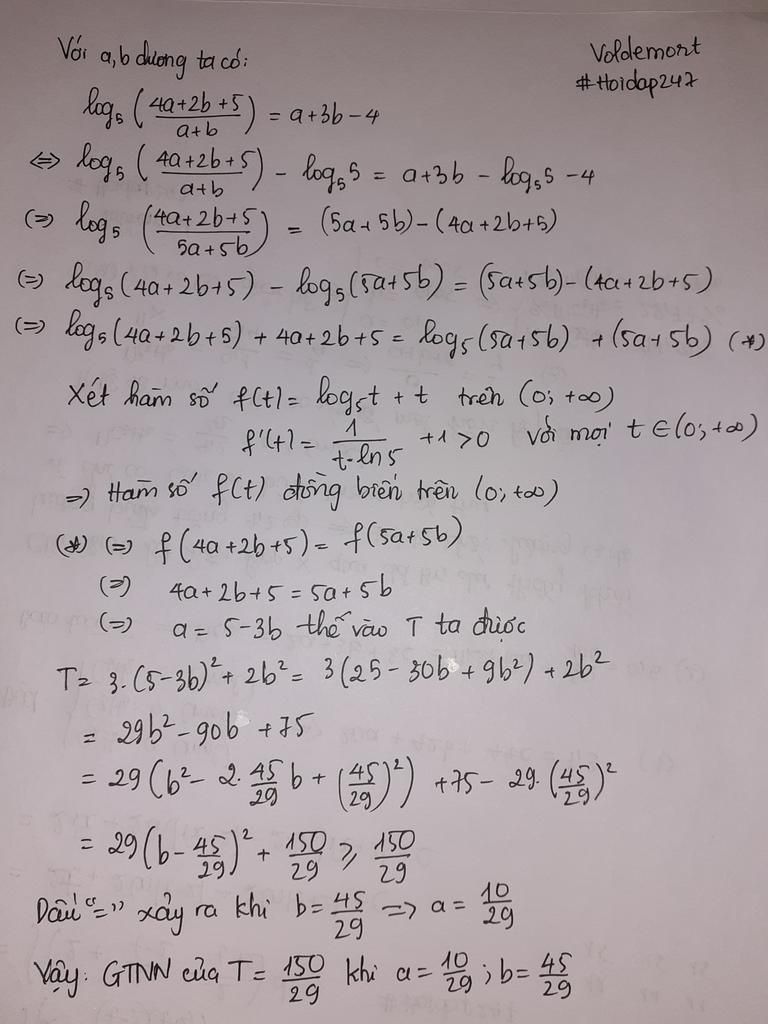 Với a, b dương ta có:
Voldemort
#Hoidap247
log₅((4a+2b+5)/(a+b)) = a+3b-4
⇔ log₅((4a+2b+5)/(a+b)) - log₅5 = a+3b - log₅5 - 4
(=) log₅((4a+2b+5)/(5a+5b)) = (5a+5b)-(4a+2b+5)
(=) log₅(4a+2b+5) - log₅(5a+5b) = (5a+5b)-(4a+2b+5)
(=) log₅(4a+2b+5) + 4a+2b+5 = log₅(5a+5b) + (5a+5b) (*)
Xét hàm số f(t) = log₅t + t trên (0; +∞)
f'(t) = 1/(t.ln5) +1 >0 với mọi t ∈ (0; +∞)
=> Hàm số f(t) đồng biến trên (0; +∞)
(*) (=) f(4a+2b+5) = f(5a+5b)
(=) 4a+2b+5 = 5a+5b
(=) a = 5-3b thế vào T ta được
T = 3.(5-3b)² + 2b² = 3(25-30b+9b²) + 2b²
= 29b² - 90b + 75
= 29(b² - 2.45/29 b + (45/29)²) + 75 - 29.(45/29)²
= 29(b - 45/29)² + 150/29 ⩾ 150/29
Dấu "=" xảy ra khi b = 45/29 => a = 10/29
Vậy: GTNN của T = 150/29 khi a = 10/29 ; b = 45/29